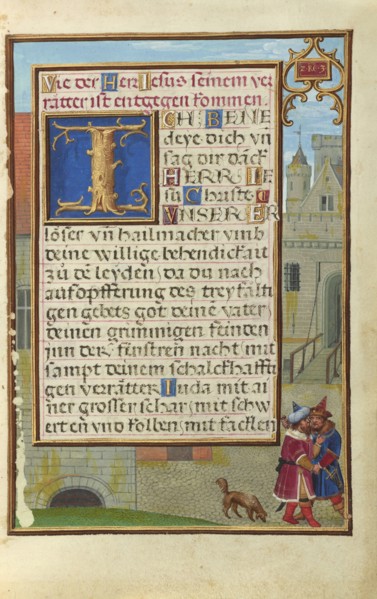 Wie der Herr Iesus seinem ver
rätter ist entgegen kommen.
ICH BENE
deye dich vn̄
sag dir danck
HERR IE
su Christe
VNSER ER
löser vn̄ hailmacher vmb
deine willige behendickait
zů de leyden, da du nach
aufopfferung des treyfalti
gen gebets got deine vater,
deinen grimmigen feinden
jnn der finstren nacht, mit
sampt deinem schalckhaffti
gen verrätter Iuda mit ai
ner grosser schar, mit schw
erten vnd kolben, mit facklen